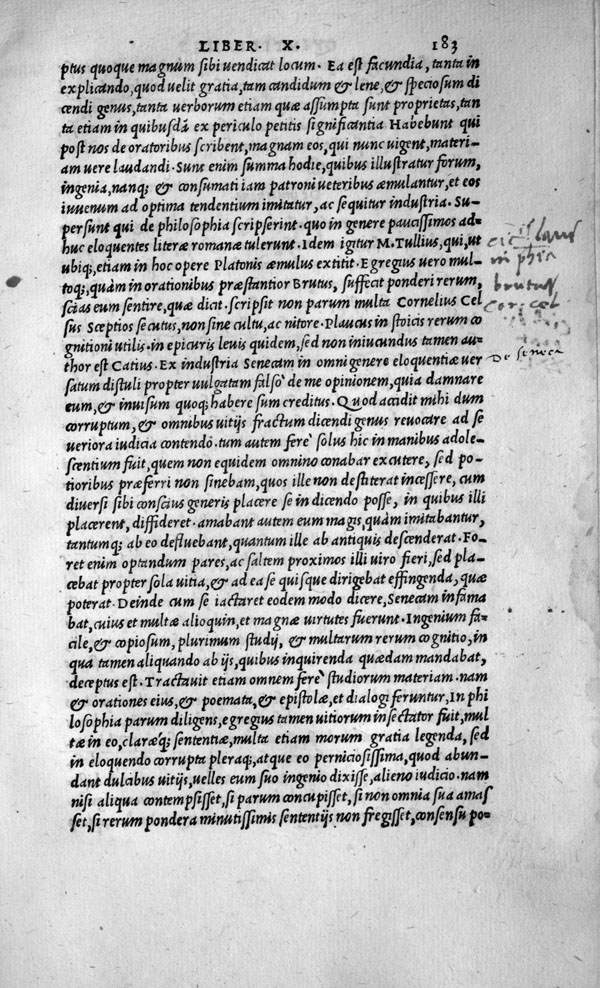 LIBER. X. 183
ptus quoque magnum sibi vendicat locum. Ea est facundia, tanta in
explicando, quod uelit gratia, tam candidum & lene, & speciosum di
cendi genus, tanta uerborum etiam quæ assumpta sunt proprietas, tan
ta etiam in quibusdã ex periculo petitis significantia Habebunt qui
post nos de oratoribus scribent, magnam eos, qui nunc uigent, materi-
am uere laudandi. Sunt enim summa hodie, quibus illustratur forum,
ingenia, nanq; & consumati iam patroni ueteribus æmulantur, et eos
iuuenum ad optima tendentium imitatur, ac sequitur industria. Su-
persunt qui de philosophia scripserint. quo in genere paucissimos ad-
huc eloquentes literæ romanæ tulerunt. Idem igitur M. Tullius, qui, ut
ubiq;, etiam in hoc opere Platonis æmulus extitit. Egregius uero mul-
toq;, quàm in orationibus præstantior Brutus, suffecit ponderi rerum,
scias eum sentire, quæ dicit. scripsit non parum multa Cornelius Cel
sus Sceptios secutus, non sine cultu, ac nitore. Plaucus in stoicis rerum co
gnitioni utilis. in epicuris leuis quidem, sed non iniucundus tamen au-
thor est Catius. Ex industria Senecam in omni genere eloquentiæ uer
satum distuli propter uulgatam falsò de me opinionem, quia damnare
eum, & inuisum quoq; habere sum creditus. Quod accidit mihi dum
corruptum, & omnibus uitijs fractum dicendi genus reuocare ad se
ueriora iudicia contendo. tum autem ferè solus hic in manibus adole-
scentium fuit, quem non equidem omnino conabar excutere, sed po-
tioribus præferri non sinebam, quos ille non destiterat incessere, cum
diuersi sibi conscius generis placere se in dicendo posse, in quibus illi
placerent, diffideret. amabant autem eum magis, quàm imitabantur,
tantumq; ab eo defluebant, quantum ille ab antiquis descenderat. Fo-
ret enim optandum pares, ac saltem proximos illi uiro fieri, sed pla-
cebat propter sola uitia, & ad ea se quisque dirigebat effingenda, quæ
poterat. Deinde cum se iactaret eodem modo dicere, Senecam infama
bat, cuius et multæ alioquin, et magnæ uirtutes fuerunt. Ingenium fa-
cile, & copiosum, plurimum studij, & multarum rerum cognitio, in
qua tamen aliquando ab ijs, quibus inquirenda quædam mandabat,
deceptus est. Tractauit etiam omnem ferè studiorum materiam. nam
& orationes eius, & poemata, & epistolæ, et dialogi feruntur, In phi
losophia parum diligens, egregius tamen uitiorum insectator fuit, mul
tæ in eo, claræq; sententiæ, multa etiam morum gratia legenda, sed
in eloquendo corrupta pleraq;, atque eo perniciosissima, quod abun-
dant dulcibus uitijs, uelles eum suo ingenio dixisse, alieno iudicio. nam
nisi aliqua contempsisset, si parum concupisset, si non omnia sua amas
set, si rerum pondera minutissimis sententijs non fregisset, consensu po-
in phia
brutus
cor. cel
De seneca